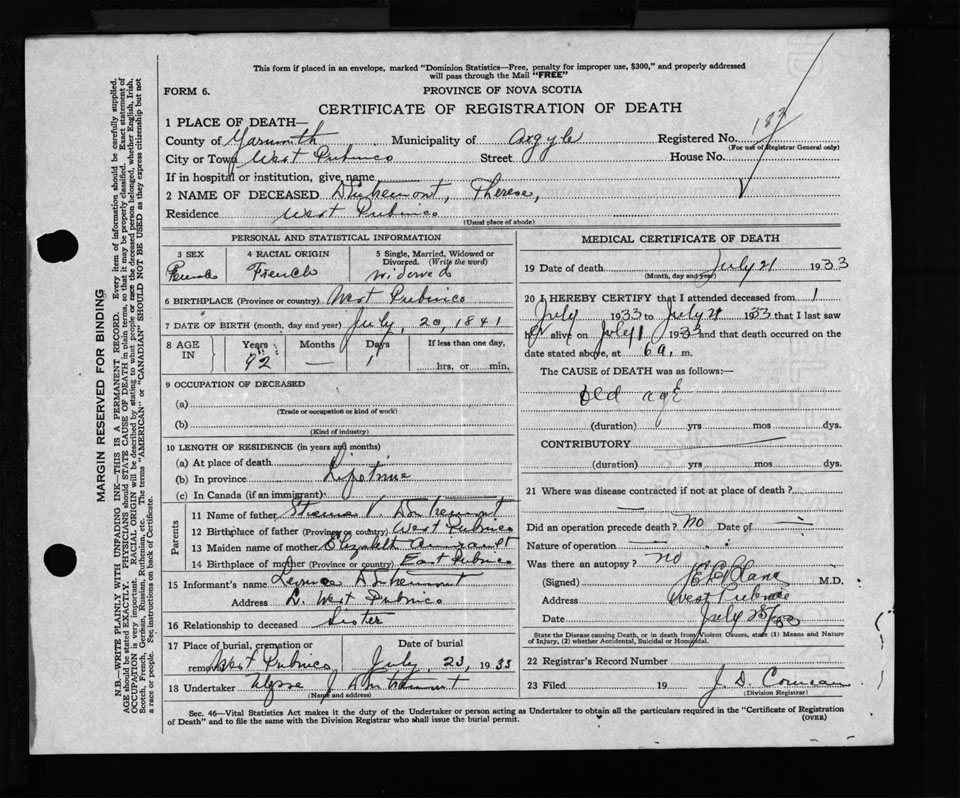 This form if placed in an envelope, marked "Dominion Statistics—Free, penalty for improper use, $300," and properly addressed
will pass through the Mail "FREE"
FORM 6. PROVINCE OF NOVA SCOTIA
CERTIFICATE OF REGISTRATION OF DEATH
1 PLACE OF DEATH—
County of Yarmouth Municipality of Argyle Registered No.
(For use of Registrar General only)
City or Town West Pubnico Street House No.
If in hospital or institution, give name
2 NAME OF DECEASED D'Entremont, Therese,
Residence West Pubnico
(Usual place of abode)
PERSONAL AND STATISTICAL INFORMATION
3 SEX 4 RACIAL ORIGIN 5 Single, Married, Widowed or
Divorced. (Write the word)
Female French widowed
6 BIRTHPLACE (Province or country) West Pubnico
7 DATE OF BIRTH (month, day and year) July, 20, 1841
8 AGE IN Years Months Days If less than one day,
92 — 1 hrs. or min.
9 OCCUPATION OF DECEASED
(a)
(Trade or occupation or kind of work)
(b)
(Kind of industry)
10 LENGTH OF RESIDENCE (in years and months)
(a) At place of death
(b) In province Lifetime
(c) In Canada (if an immigrant)
Parents
11 Name of father V. D'Entremont
12 Birthplace of father (Province or country) West Pubnico
13 Maiden name of mother Elizabeth
14 Birthplace of mother (Province or country) East Pubnico
15 Informant's name D'Entremont
Address L. West Pubnico
16 Relationship to deceased Sister
17 Place of burial, cremation or Date of burial
removal West Pubnico July, 23, 1933
18 Undertaker J D'Entremont
(Name and address)
MEDICAL CERTIFICATE OF DEATH
19 Date of death July 21 1933
(Month, day and year)
20 I HEREBY CERTIFY that I attended deceased from 1
July 1933 to July 21 1933 that I last saw
her alive on July 1 1933 and that death occurred on the
date stated above, at 6 a. m.
The CAUSE of DEATH was as follows:—
Old age
(duration) yrs mos dys.
CONTRIBUTORY
(duration) yrs mos dys.
21 Where was disease contracted if not at place of death?
Did an operation precede death? no Date of
Nature of operation
Was there an autopsy? no
(Signed) M.D.
Address West Pubnico
Date July 25/33
State the Disease causing Death, or in death from Violent Causes, state (1) Means and Nature
of Injury, (2) whether Accidental, Suicidal or Homicidal.
22 Registrar's Record Number
23 Filed 19 J. D.
(Division Registrar)
Sec. 46—Vital Statistics Act makes it the duty of the Undertaker or person acting as Undertaker to obtain all the particulars required in the "Certificate of Registration
of Death" and to file the same with the Division Registrar who shall issue the burial permit. (OVER)
MARGIN RESERVED FOR BINDING
N.B.—WRITE PLAINLY WITH UNFADING INK—THIS IS A PERMANENT RECORD. Every item of information should be carefully supplied.
AGE should be stated EXACTLY. PHYSICIANS should STATE CAUSE OF DEATH in plain terms, so that it may be properly classified. Exact statement of
OCCUPATION is very important. RACIAL ORIGIN will be described by stating to what people or race the deceased person belonged, whether English, Irish,
Scotch, French, German, Russian, Ruthenian, etc. The terms "AMERICAN" or "CANADIAN" SHOULD NOT BE USED as they express citizenship but not
a race or people. See instructions on back of Certificate.